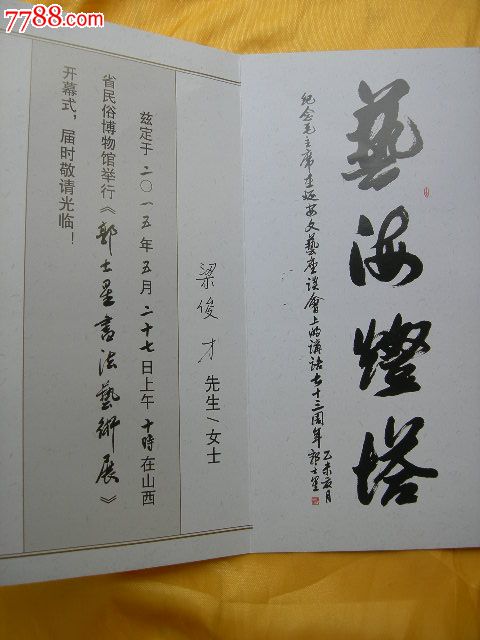 7788.com
藝海燈塔
纪念毛主席在延安文藝座谈會上的講話七十三周年
乙未夏月
郭士星
梁俊才 先生/女士
兹定于二〇一五年五月二十七日上午十時在山西
省民俗博物馆举行《郭士星書法藝術展》
开幕式，届时敬请光临！